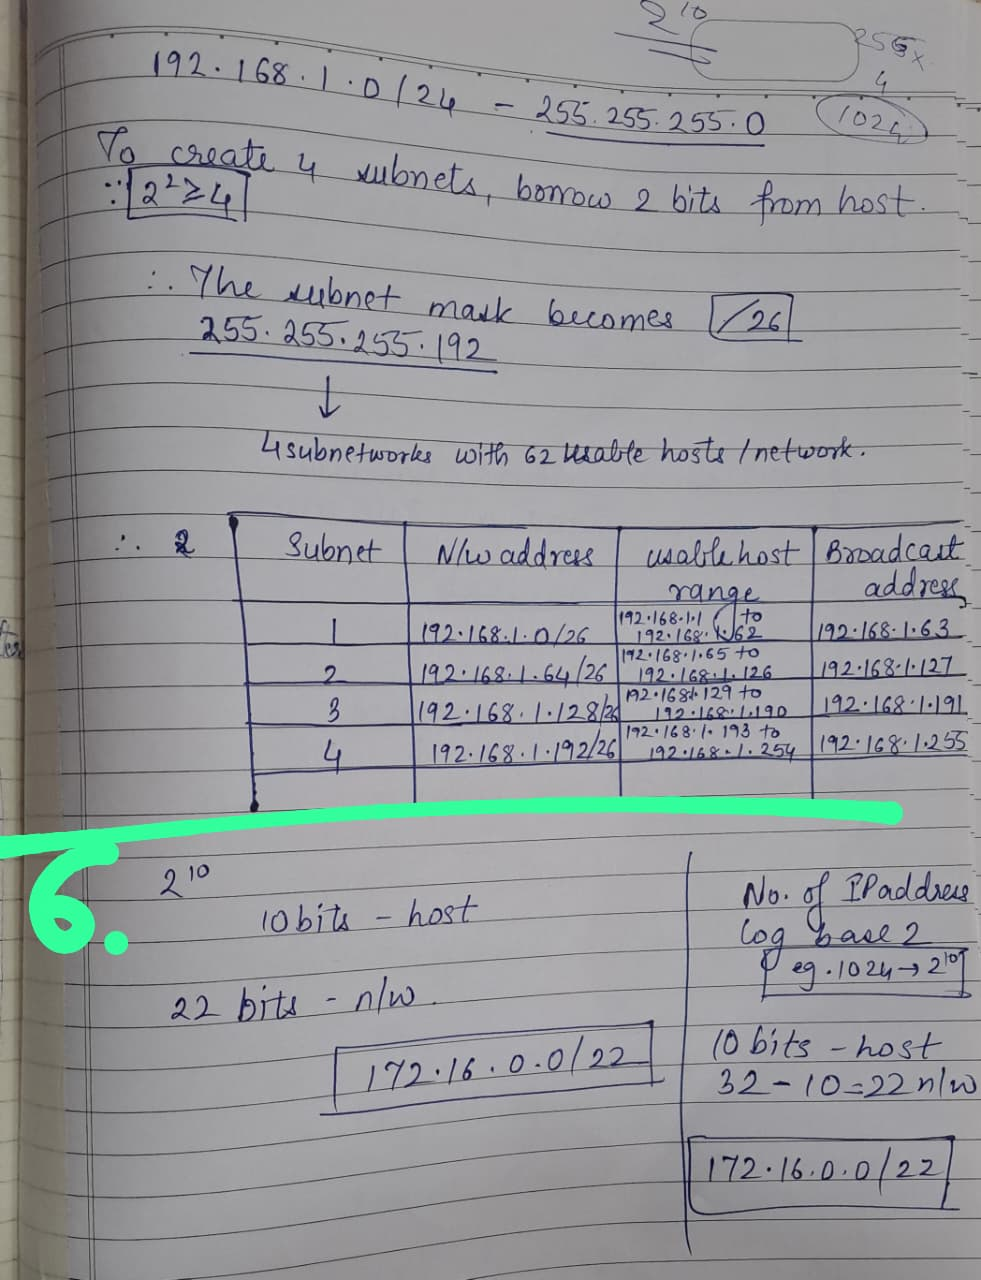 2¹⁰
256 x
4
1024
192.168.1.0/24 - 255.255.255.0
To create 4 subnets, borrow 2 bits from host.
∵ 2² ≥ 4
∴ The subnet mask becomes /26
255.255.255.192
↓
4 subnetworks with 62 usable hosts/network.
∴ 2
Subnet | N/w address | usable host range | Broadcast address
1 | 192.168.1.0/26 | 192.168.1.1 to 192.168.1.62 | 192.168.1.63
2 | 192.168.1.64/26 | 192.168.1.65 to 192.168.1.126 | 192.168.1.127
3 | 192.168.1.128/26 | 192.168.1.129 to 192.168.1.190 | 192.168.1.191
4 | 192.168.1.192/26 | 192.168.1.193 to 192.168.1.254 | 192.168.1.255
6.
2¹⁰
10 bits - host
22 bits - n/w.
172.16.0.0/22
No. of IP address
log base 2
eg. 1024 → 2¹⁰
10 bits - host
32 - 10 = 22 n/w
172.16.0.0/22